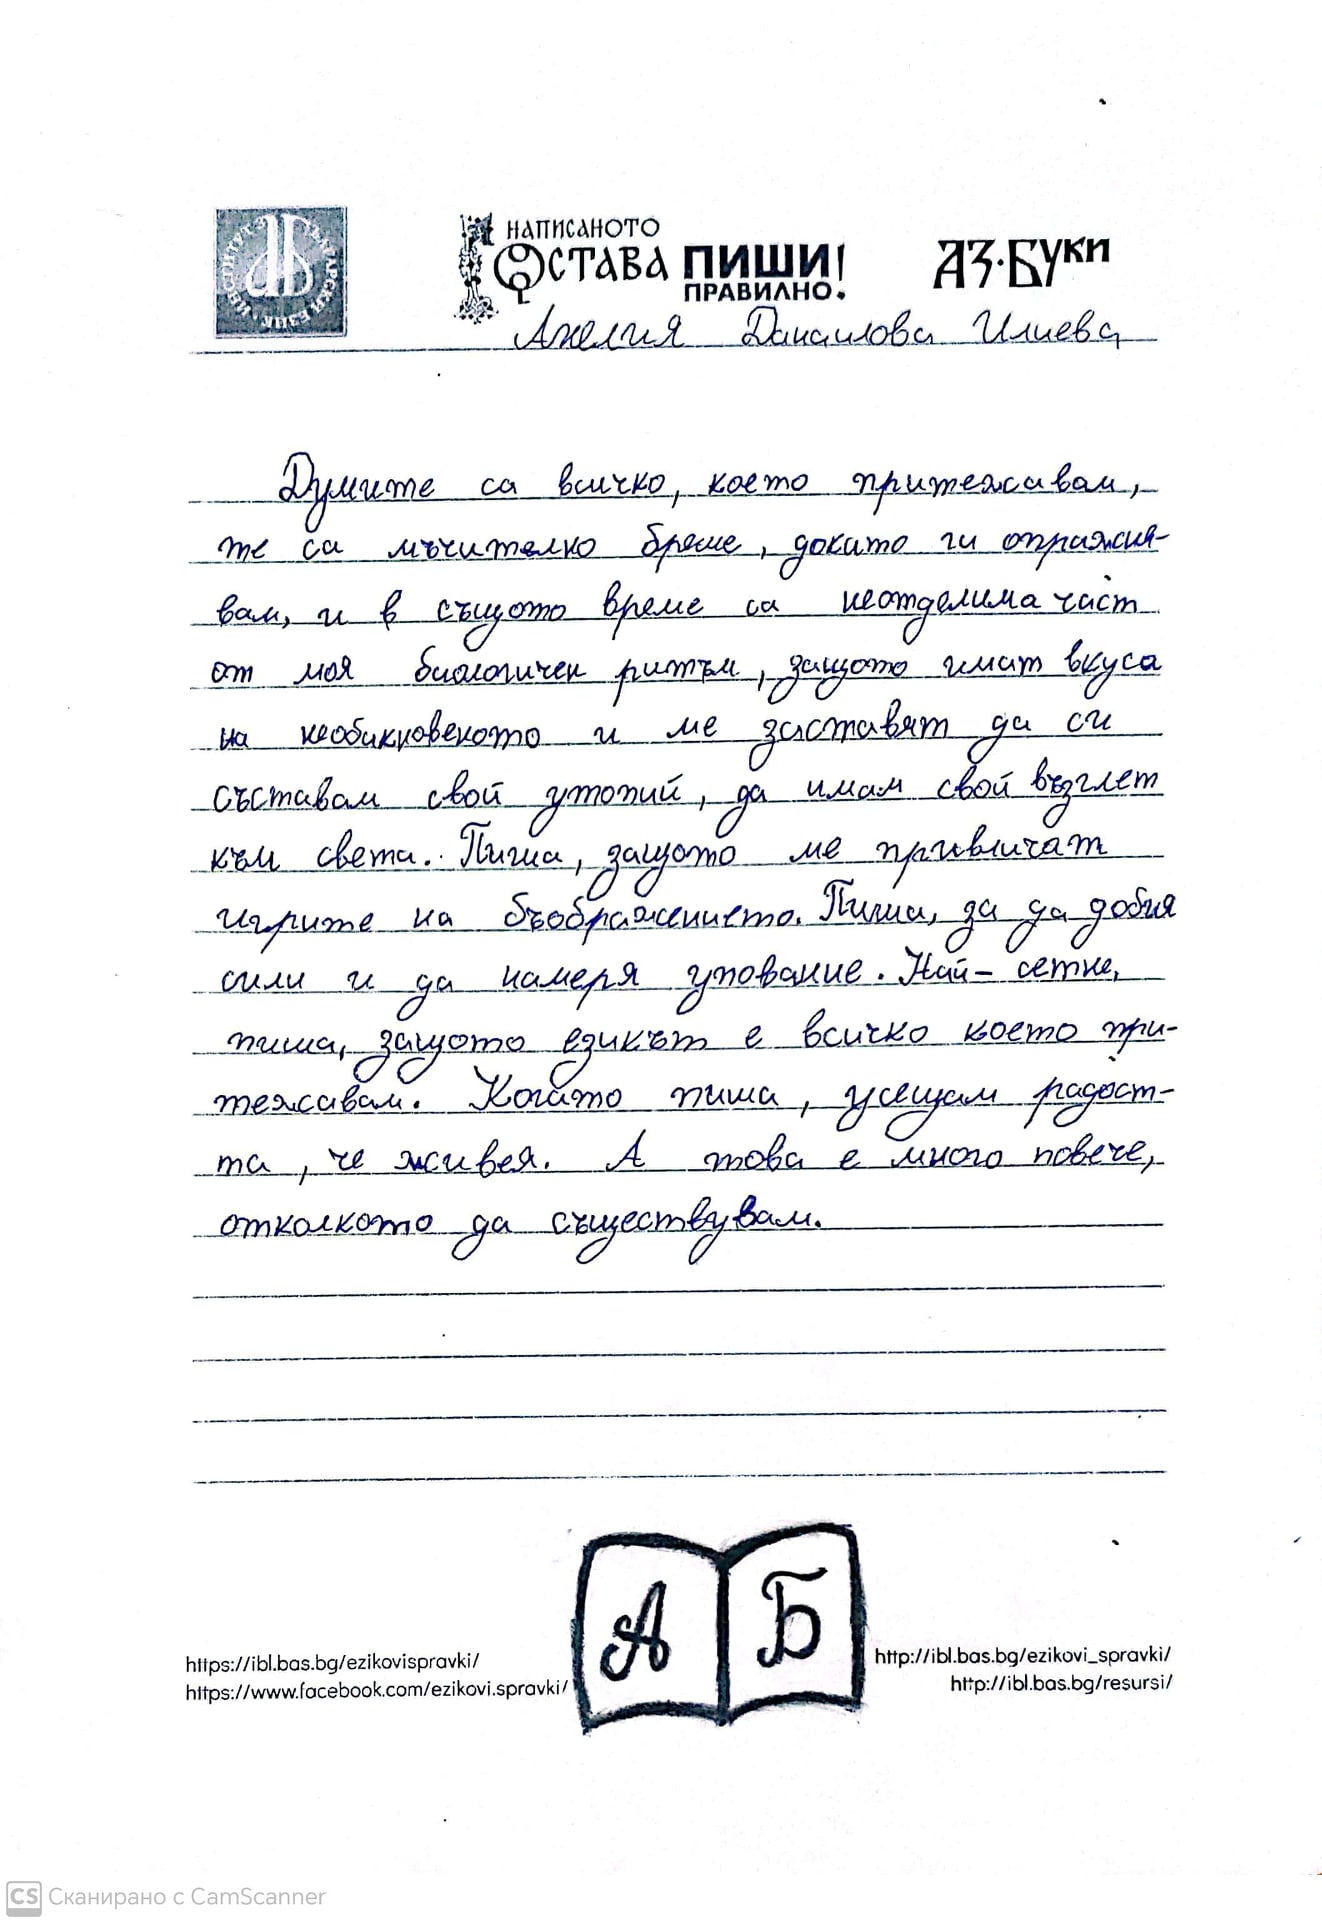 ИНСТИТУТ ЗА БЪЛГАРСКИ ЕЗИК
НАПИСАНОТО
ОСТАВА ПИШИ!
ПРАВИЛНО.
АЗ·БУКИ
Анелия Данаилова Илиева
Думите са всичко, което притежавам,
те са мъчително бреме, докато ги опражня-
вам, и в същото време са неотделима част
от моя биологичен ритъм, защото имат вкуса
на необикновеното и ме заставят да си
съставам свой утопий, да имам свой възглет
към света. Пиша, защото ме привличат
игрите на въображението. Пиша, за да добия
сили и да намеря упование. Най-сетне,
пиша, защото езикът е всичко което при-
тежавам. Когато пиша, усещам радост-
та, че живея. А това е много повече,
отколкото да съществувам.
А Б
https://ibl.bas.bg/ezikovispravki/
https://www.facebook.com/ezikovi.spravki/
http://ibl.bas.bg/ezikovi_spravki/
http://ibl.bas.bg/resursi/
CS Сканирано с CamScanner